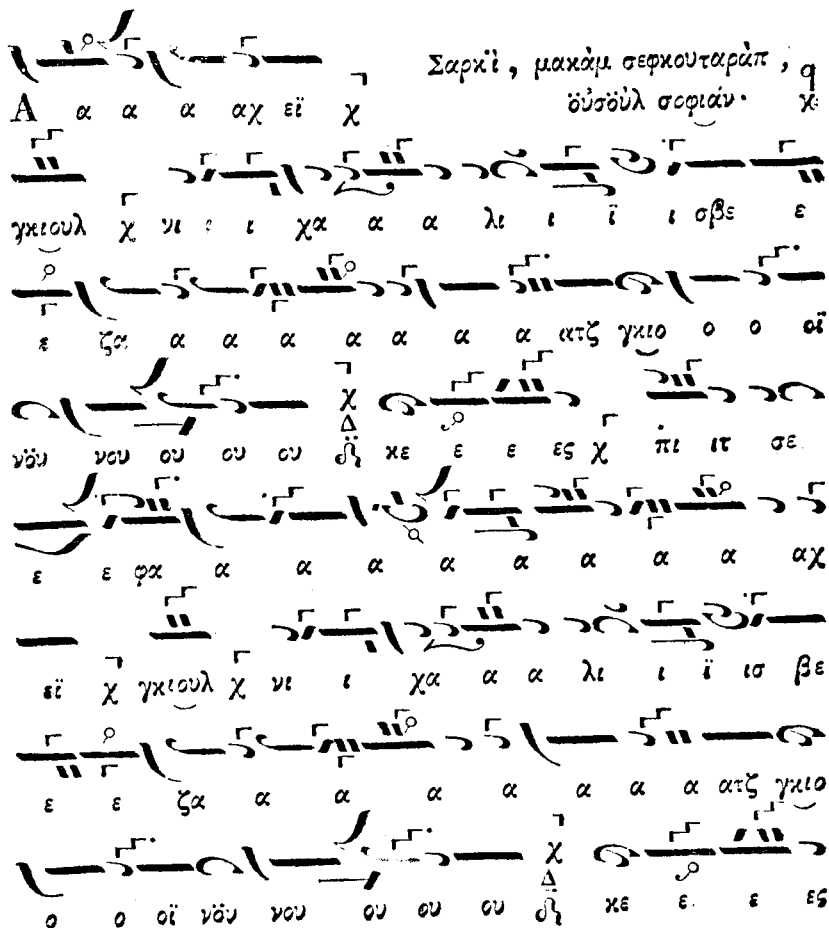 Σαρκὶ̈, μακὰμ σεφκουταρὰπ, q
ὀ̈ύσοὺλ σοφιάν. χ
Α α α α αχ εϊ χ
γκιουλ χ νι ι ι χα α α λι ι ϊ ι σβε ε
ε ζα α α α α α α α ατζ γκιο ο ο οϊ
νόϋ νου ου ου ου χ Δ κε ε ε ες χ πι ιτ σε
ε ε φα α α α α α α α α α αχ
εϊ χ γκιουλ χ νι ι χα α α λι ι ϊ ισ βε
ε ε ζα α α α α α α α ατζ γκιο
ο ο οϊ νόϋ νου ου ου ου χ Δ κε ε ε ες